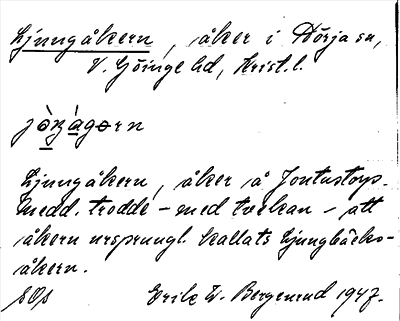 Ljungåkern, åker i Hörja sn,
V. Göinge hd, Krist. l.
jò̱ŋá̱gərn
Ljungåkern, åker å Jontustorp.
Medd. trodde – med tvekan – att
åkern ursprungl. kallats Ljungbäcks-
åkern.
Erik W. Bergenrud 1947.